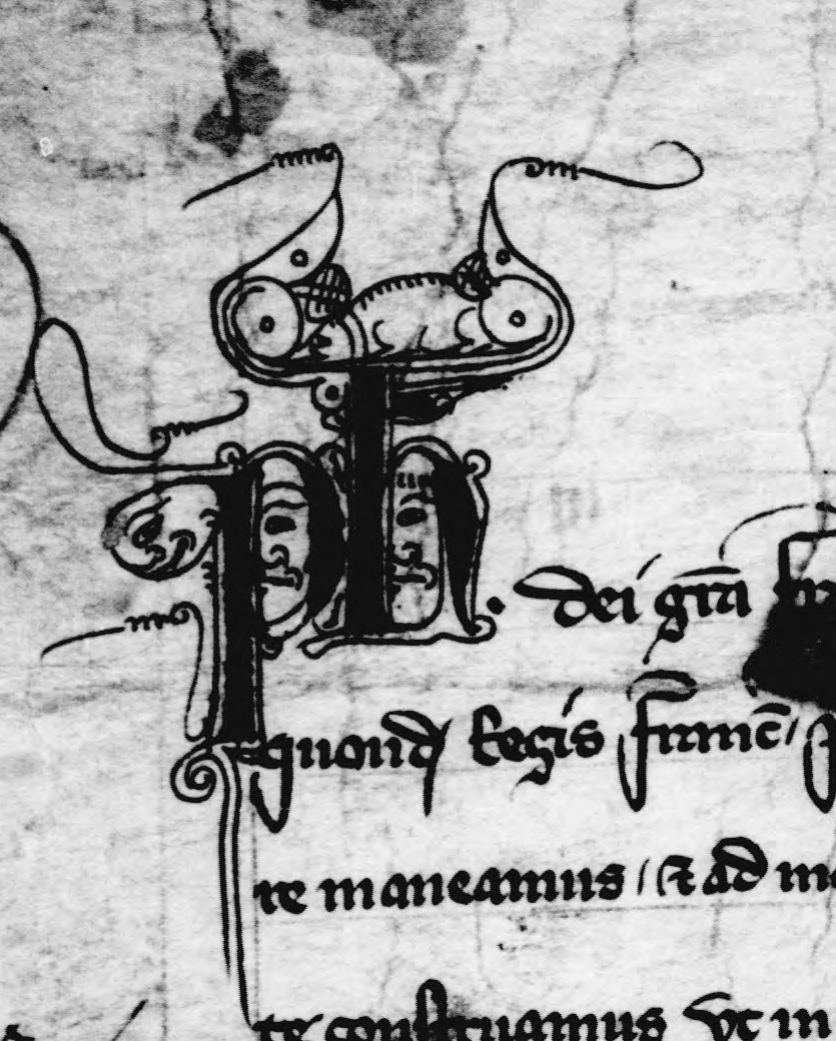 Ph. dei gr̄a
quond Regis franc̄
re maneamus / et ad
te constituamus vt in